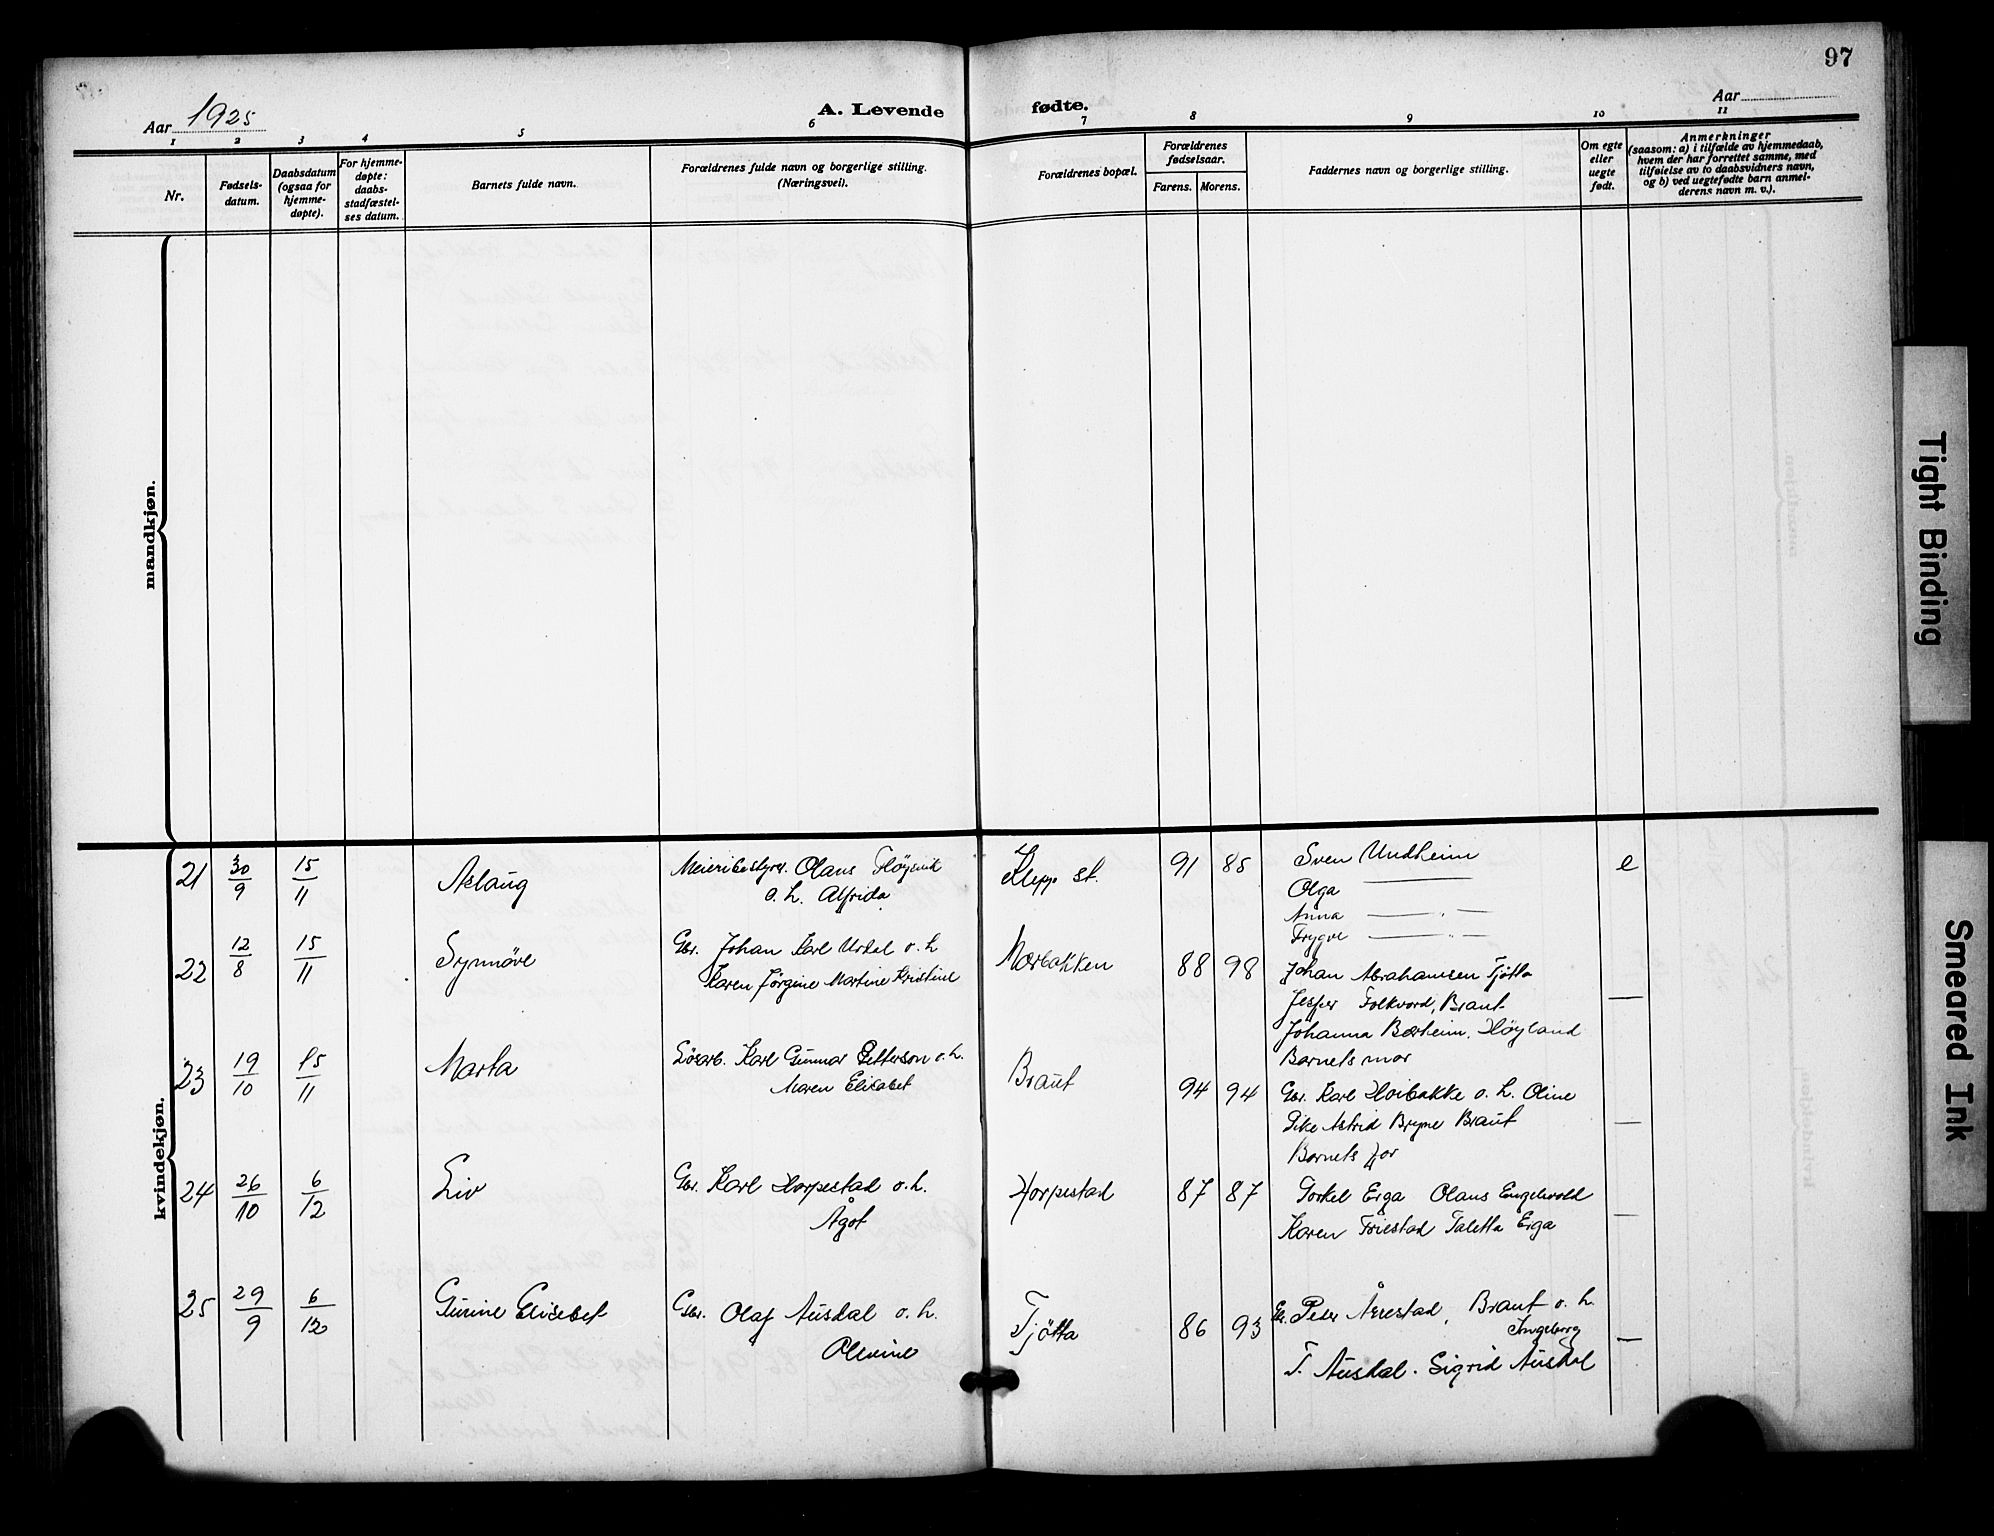 97
Aar 1925
A. Levende fødte.
Aar
1 2 3 4 5 6 7 8 9 10 11
Nr.
Fødsels-
datum.
Daabsdatum
(ogsaa for
hjemme-
døpte).
For hjemme-
døpte:
daabs-
stadfæstel-
ses datum.
Barnets fulde navn.
Forældrenes fulde navn og borgerlige stilling.
(Næringsvei).
Forældrenes bopæl.
Forældrenes
fødselsaar.
Farens. Morens.
Faddernes navn og borgerlige stilling.
Om egte
eller
uegte
født.
Anmerkninger
(saasom: a) i tilfælde av hjemmedaab,
hvem der har forrettet samme, med
tilføielse av to daabsvidners navn,
og b) ved uegtefødte barn anmel-
derens navn m. v.).
mandkjøn.
kvindekjøn.
21 30/9 15/11 Aslaug Meieribestyrer. Olaus
o. h. Alfrida
Klepp st. 91 85 Sven Undheim e
Olga —
Anna — " —
Trygve — " —
22 12/8 15/11 Synnöve Gbr. Johan Karl Urdal o. h
Karen Jørgine Martine Kristine
Nærbakken 88 98 Johan Abrahamsen Tjøtta
Jesper Folkvord, Braut —
Johanna Bærheim, Høyland
Barnets mor
23 19/10 15/11 Marta Løsarb. Karl Gunnar Petterson o. h.
Maren Elisabet
Braut 94 94 Gbr. Karl Høibakke o. h. Oline
Pike Astrid Bryne Braut —
Barnets far
24 26/10 6/12 Liv Gbr. Karl Horpestad o. h.
Ågot
Horpestad 87 87 Torkel Erga Olaus Engelsvold
Karen Friestad Taletta Erga —
25 29/9 6/12 Gurine Elisabet Gbr. Olaf Ausdal o. h.
Olevine
Tjøtta 86 93 Gbr. Peder Årrestad, Braut o. h.
Ingeborg —
T. Ausdal. Sigrid Ausdal
Tight Binding
Smeared Ink